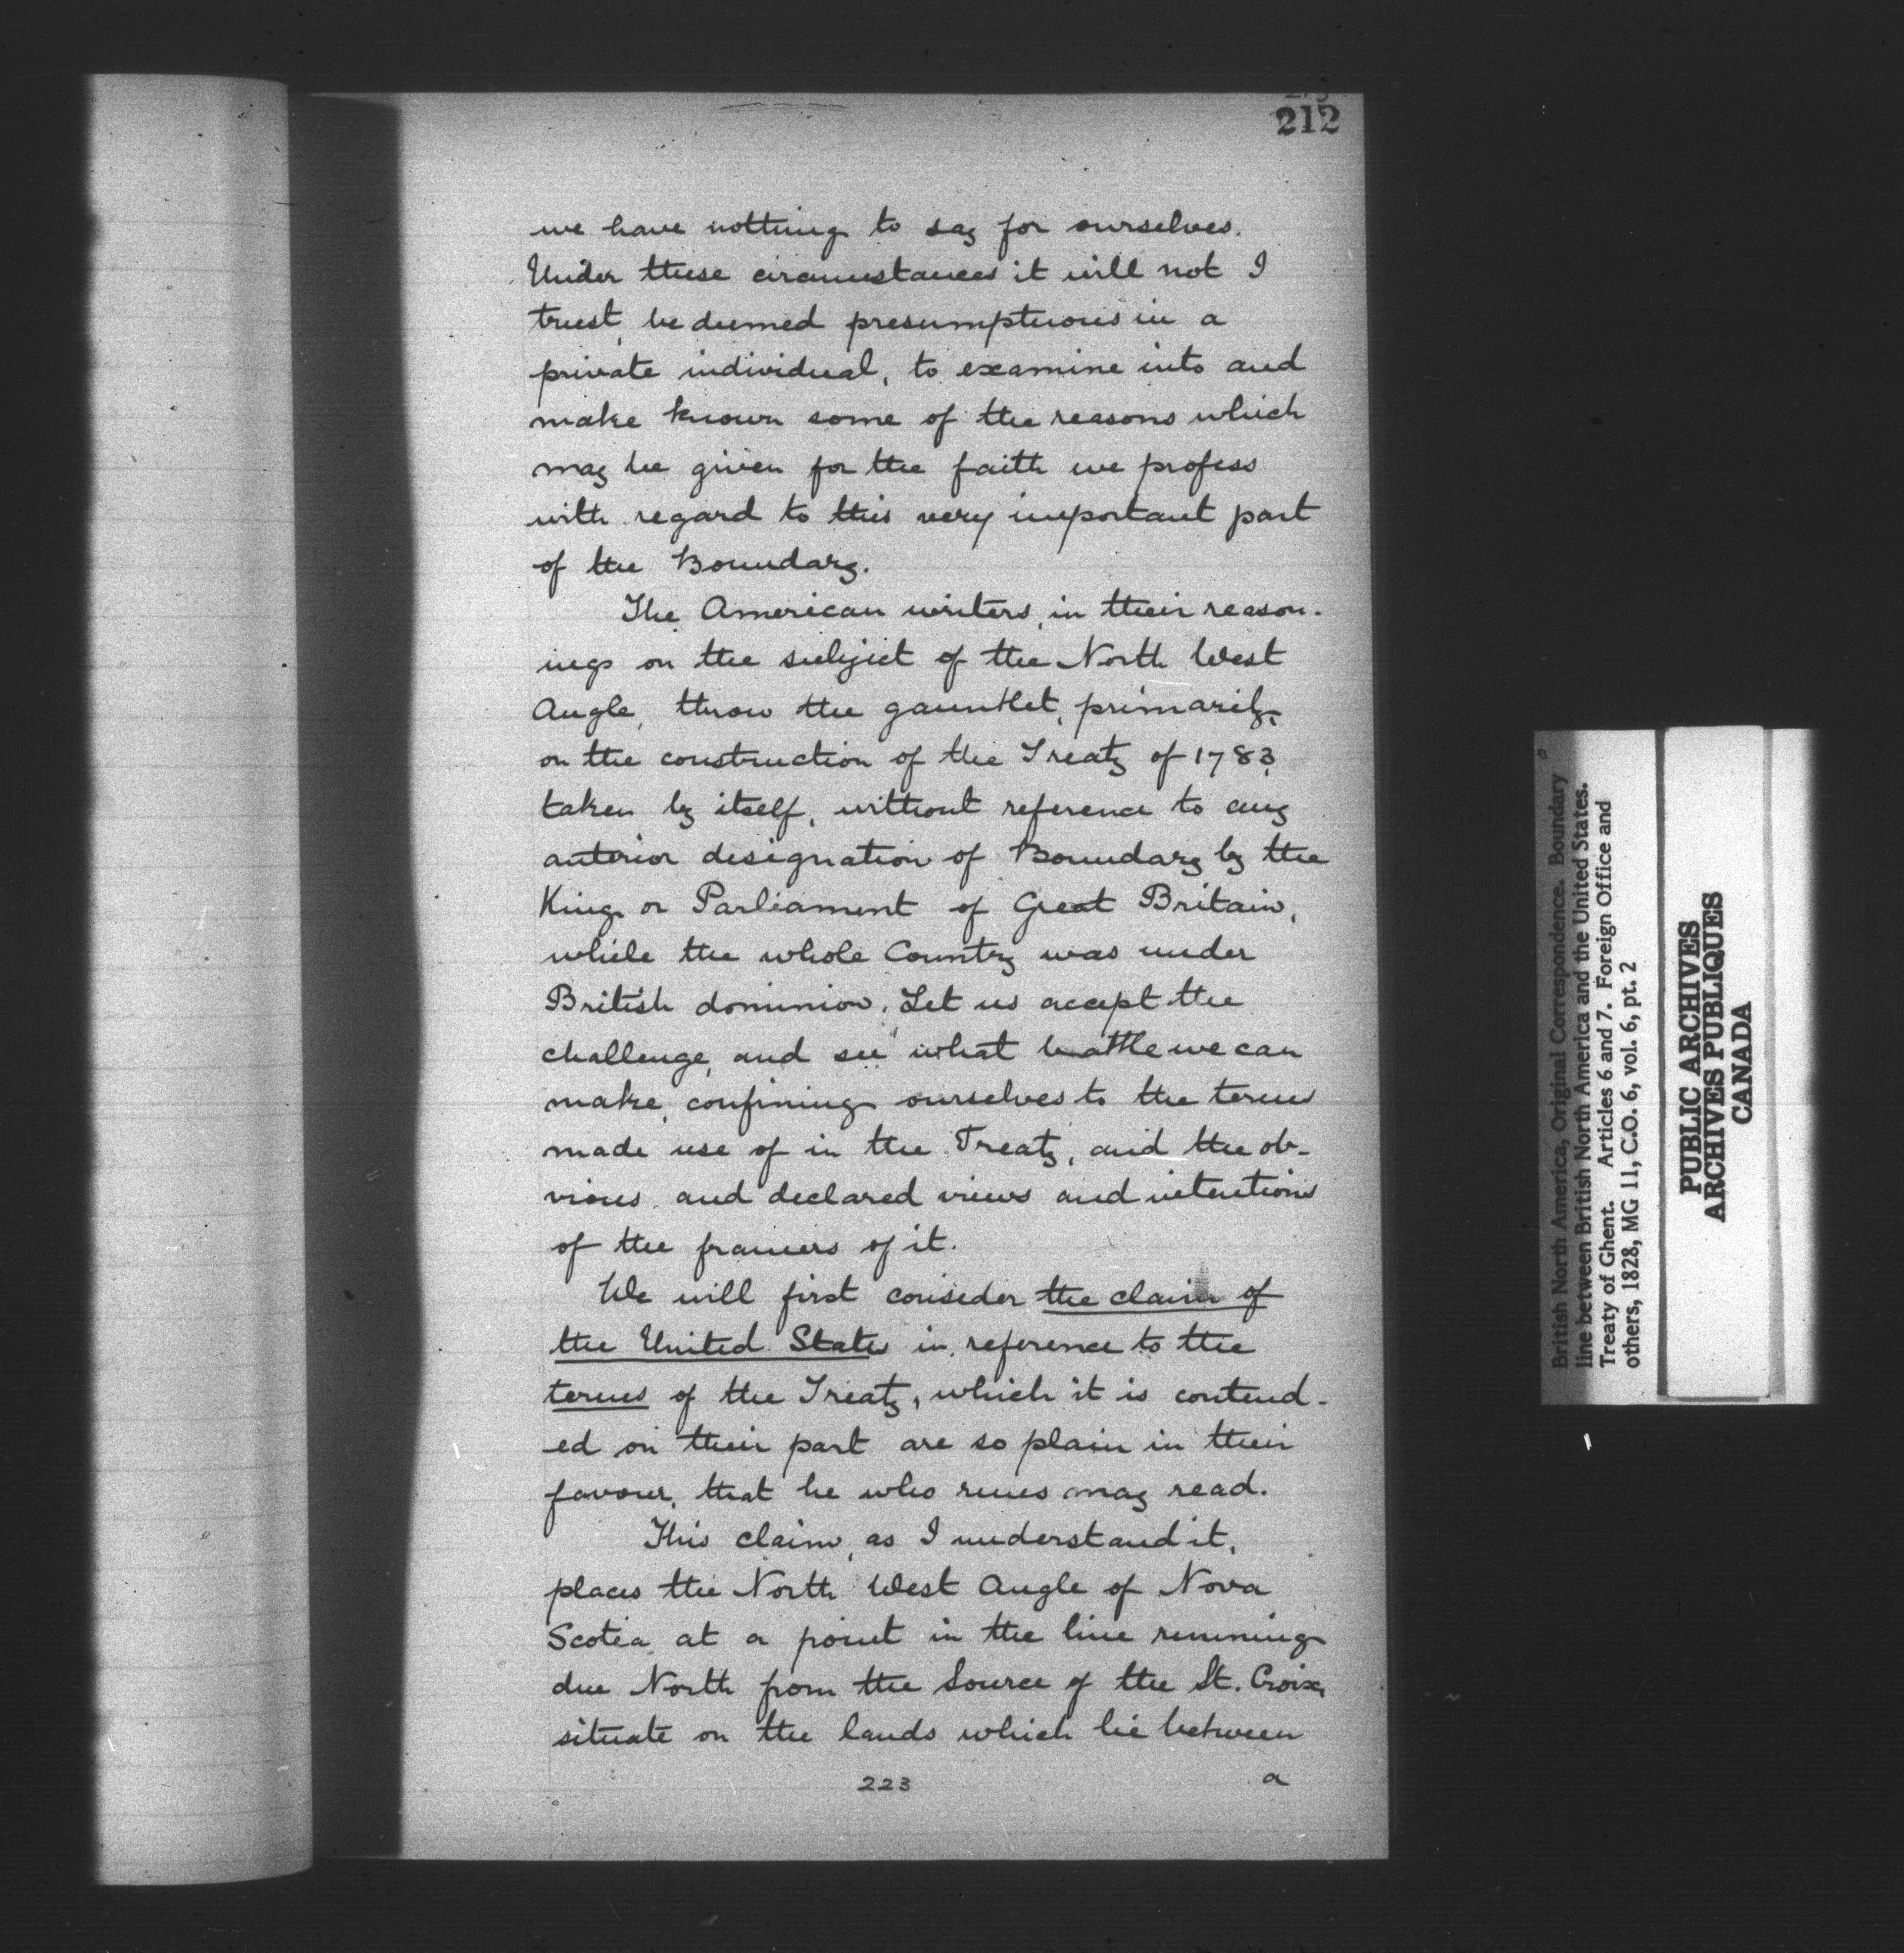 212
we have nothing to say for ourselves.
Under these circumstances it will not I
trust, be deemed presumptuous in a
private individual, to examine into and
make known some of the reasons which
may be given for the faith we profess
with regard to this very important part
of the Boundary.
The American writers, in their reason-
ings on the subject of the North West
Angle, throw the gauntlet, primarily,
on the construction of the Treaty of 1783,
taken by itself, without reference to any
anterior designation of Boundary by the
King or Parliament of Great Britain,
while the whole Country was under
British dominion. Let us accept the
challenge, and see what battle we can
make, confining ourselves to the terms
made use of in the Treaty, and the ob-
vious and declared views and intentions
of the framers of it.
We will first consider the claim of
the United States in reference to the
terms of the Treaty, which it is contend-
ed on their part are so plain in their
favour, that he who runs may read.
This claim, as I understand it,
places the North West Angle of Nova
Scotia, at a point in the line running
due North from the Source of the St. Croix,
situate on the lands which lie between
a
223
British North America, Original Correspondence. Boundary
line between British North America and the United States.
Treaty of Ghent. Articles 6 and 7. Foreign Office and
others, 1828, MG 11, C.O. 6, vol. 6, pt. 2
PUBLIC ARCHIVES
ARCHIVES PUBLIQUES
CANADA